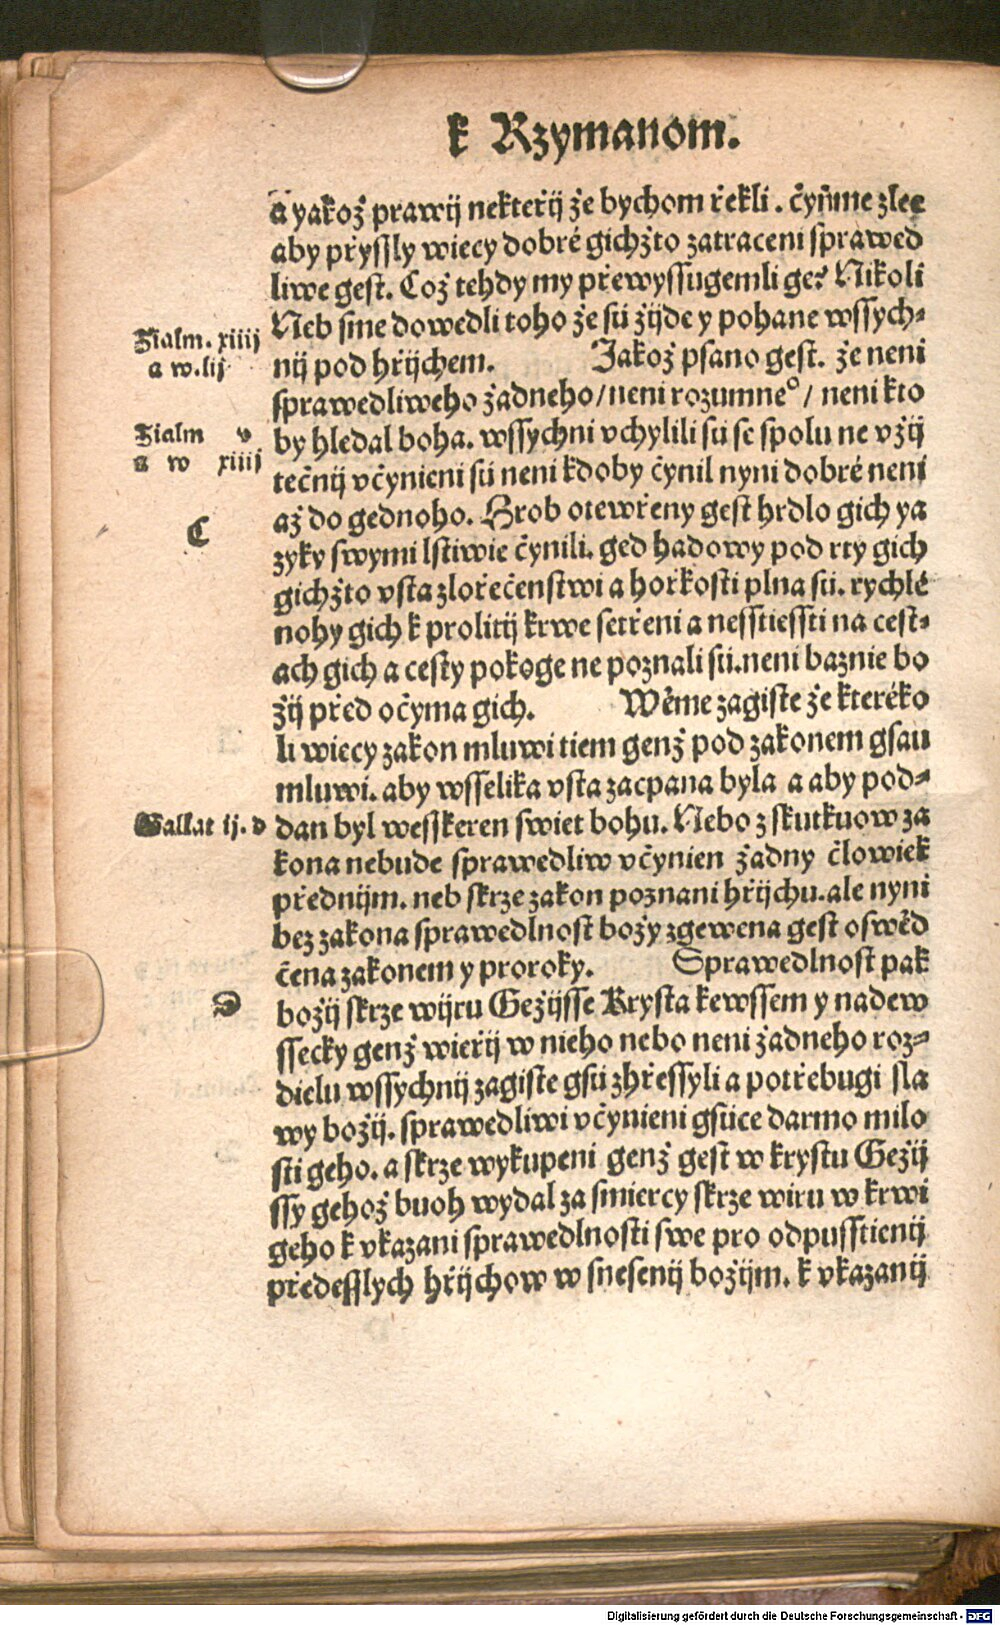 k Rzymanom.
a yakož prawij nekteřij že bychom řekli . čyňme zlee
aby přyssly wiecy dobré gichžto zatraceni sprawed
liwe gest. Což tehdy my přewyssugemli ge? Nikoli
Neb sme dowedli toho že sú žijde y pohane wssych⸗
nij pod hřijchem. Jakož psano gest. že neni
sprawedliweho žadneho/ neni rozumneº/ neni kto
by hledal boha. wssychni vchylili sú se spolu ne vžij
tečnij včynieni sú neni kdoby čynil nyni dobré neni
až do gednoho. Hrob otewřeny gest hrdlo gich ya
zyky swymi lstiwie čynili. ged hadowy pod rty gich
gichžto vsta zlořečenstwi a hořkosti plna sú. rychlé
nohy gich k prolitij krwe setřeni a nesstiessti na cest⸗
ach gich a cesty pokoge ne poznali sú. neni baznie bo
žij před očyma gich. Wěme zagiste že kteréko
li wiecy zakon mluwi tiem genž pod zakonem gsau
mluwi. aby wsselika vsta zacpana byla a aby pod⸗
dan byl wesskeren swiet bohu. Nebo z skutkuow za
kona nebude sprawedliw včynien žadny člowiek
přednijm. neb skrze zakon poznani hřijchu. ale nyni
bez zakona sprawedlnost božy zgewena gest oswěd
čena zakonem y proroky. Sprawedlnost pak
božij skrze wijru Gežijsse Krysta kewssem y nadew
ssecky genž wieřij w nieho nebo neni žadneho roz⸗
dielu wssychnij zagiste gsú zhřessyli a potřebugi sla
wy božij. sprawedliwi včynieni gsúce darmo milo
sti geho. a skrze wykupeni genž gest w krystu Gežij
ssy gehož buoh wydal za smiercy skrze wiru w krwi
geho k vkazani sprawedlnosti swe pro odpusstienij
předesslych hřijchow w snesenij božijm. k vkazanij
Zialm. xiiij
a w. lij
Zialm v
a w xiiij
C
Gallat ij. d
D
Digitalisierung gefördert durch die Deutsche Forschungsgemeinschaft - DFG